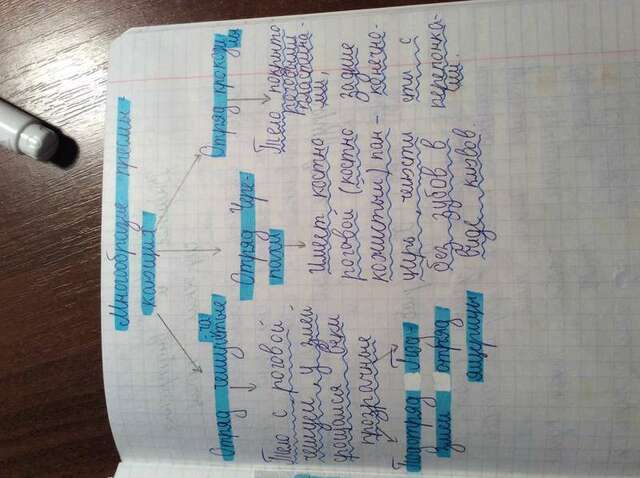 Многообразие пресмы
кающих
Отряд чешуйчатые
Тело с роговой
чешуей у змей
сросшился веки
прозрачные
Подотряд
змеи
Под-
отряд
ящерицы
Отряд Чере-
пахи
Имеет костно
роговой (костно
кожистый) пан-
цирь челюсти
без зубов в
виде клювов.
Отряд крокоди
лы
Тело покрыто
роговыми
пластина-
ми,
задние
конечно-
сти с
перепонка-
ми.